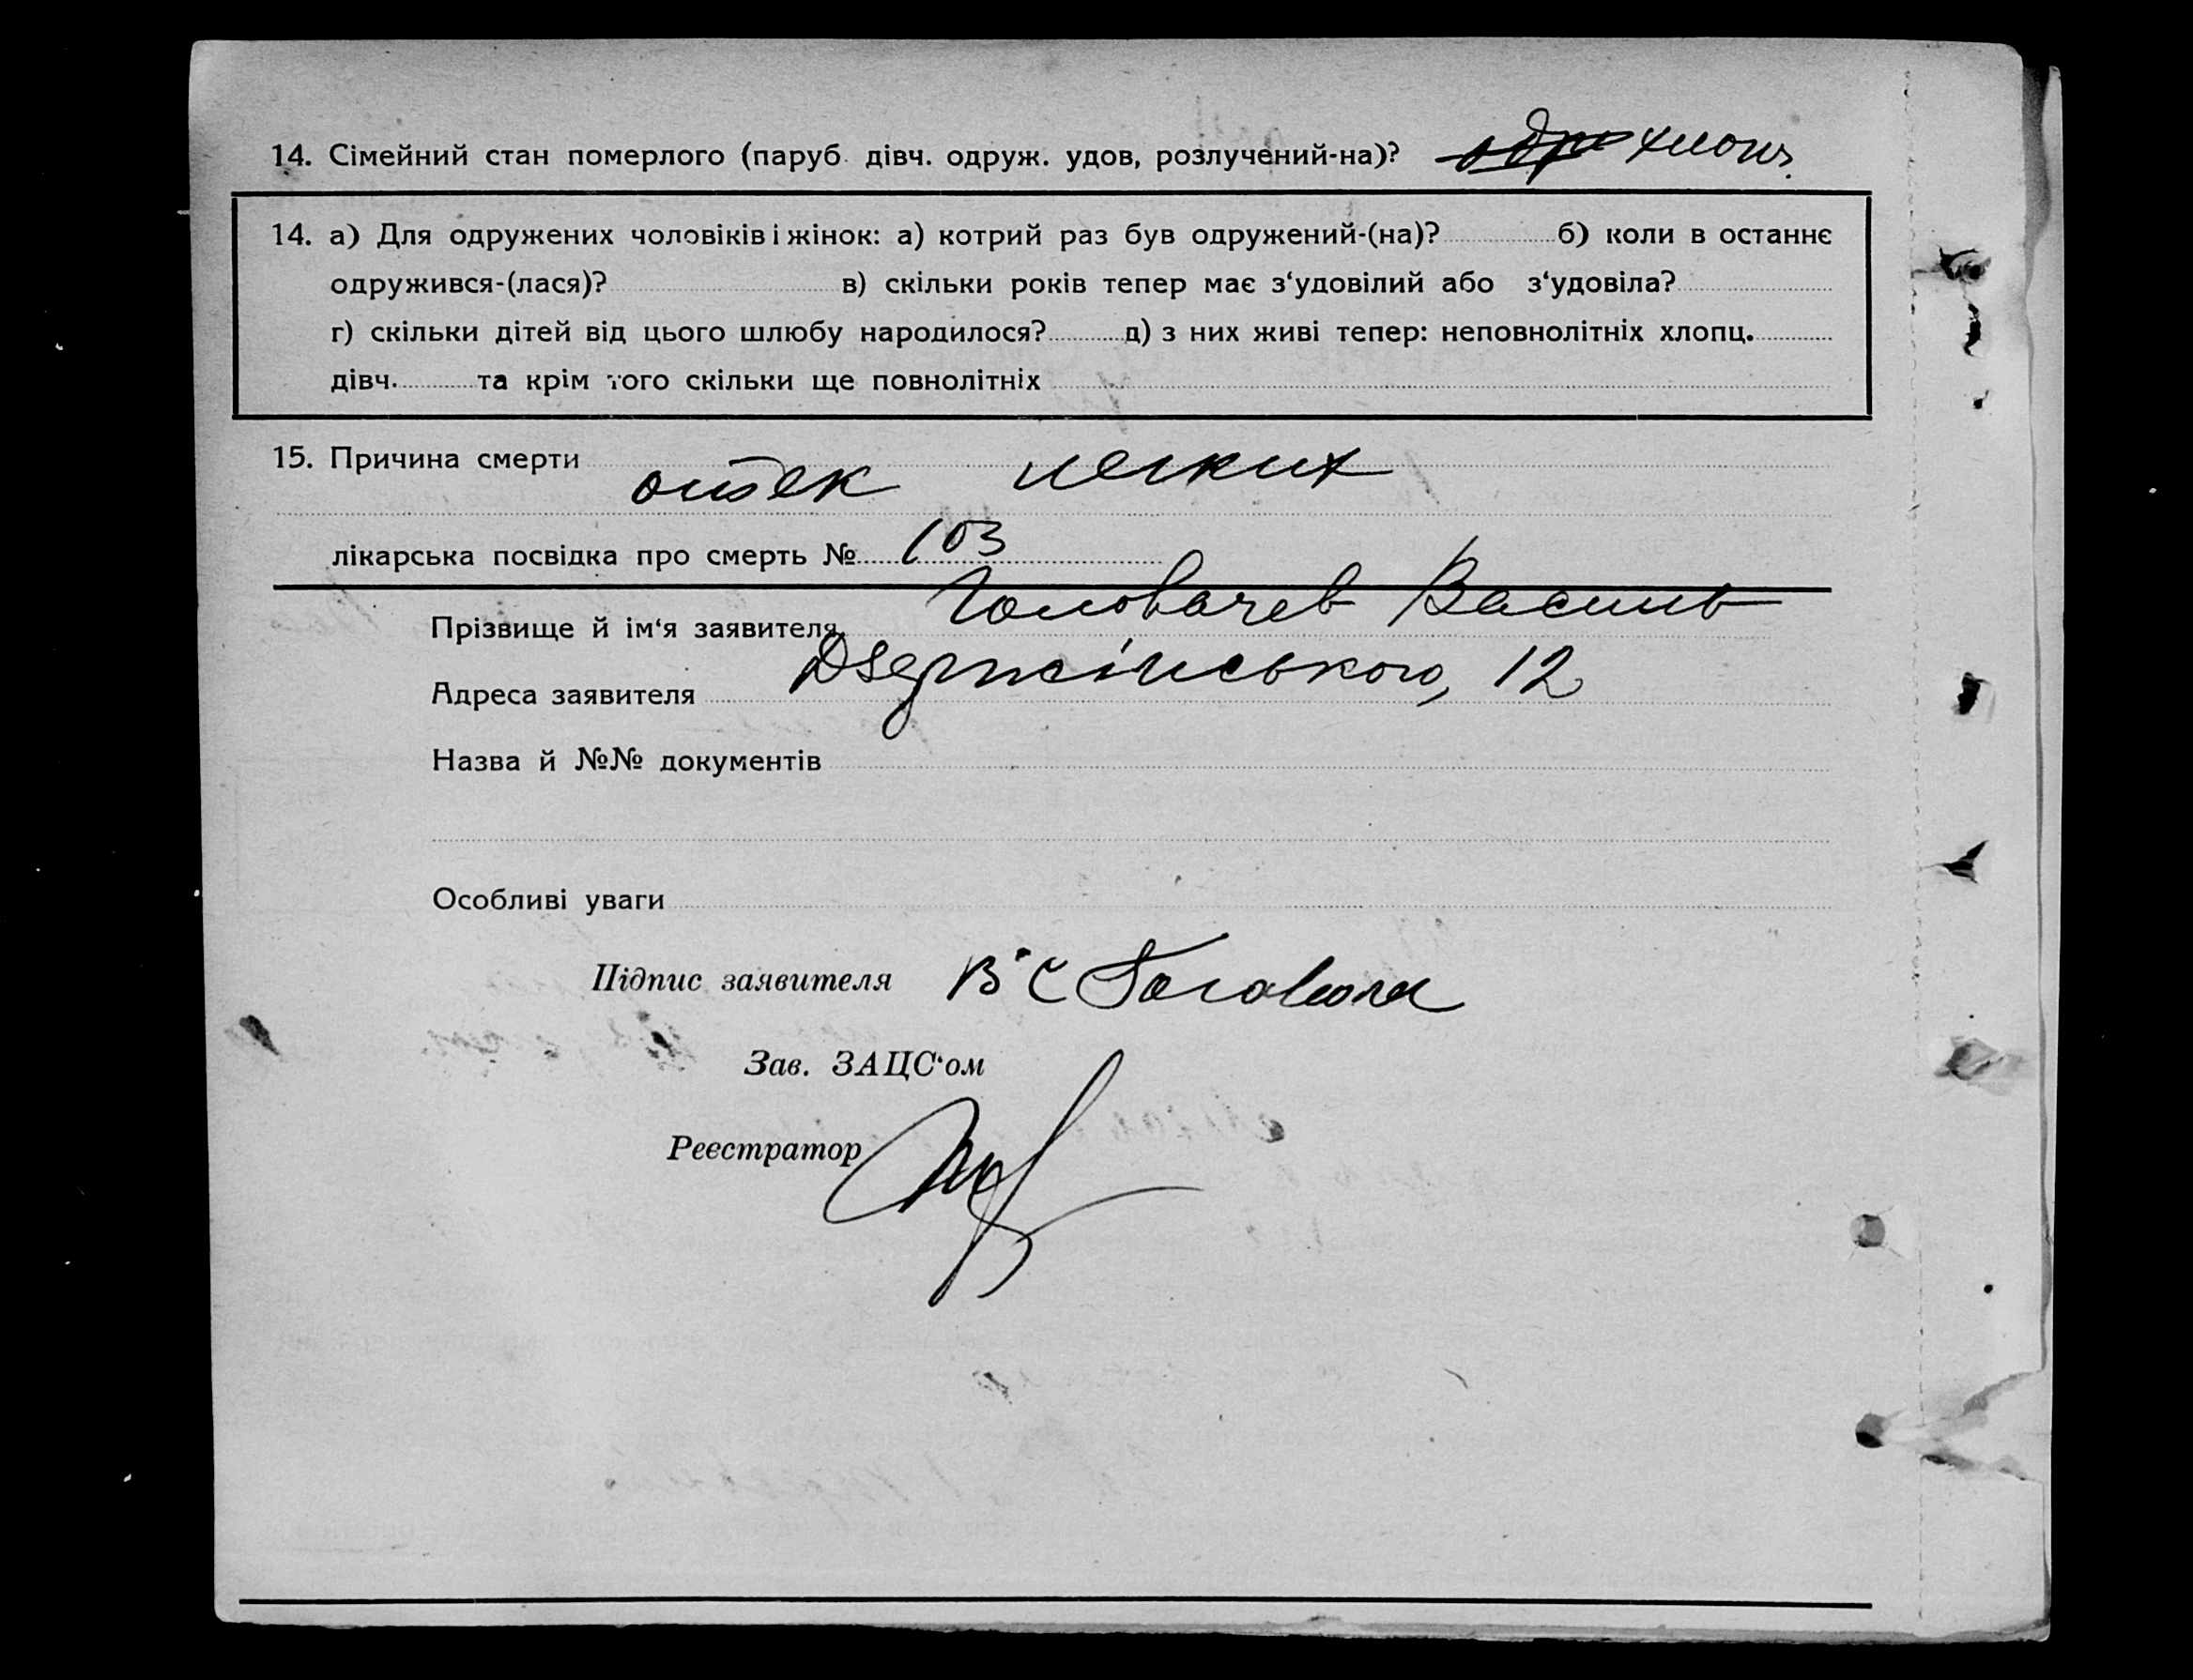 14. Сімейний стан померлого (паруб. дівч. одруж. удов, розлучений-на)? одру хлопч.
14. а) Для одружених чоловіків і жінок: а) котрий раз був одружений-(на)? б) коли в останнє
одружився-(лася)? в) скільки років тепер має з‘удовілий або з‘удовіла?
г) скільки дітей від цього шлюбу народилося? д) з них живі тепер: неповнолітніх хлопц.
дівч. та крім того скільки ще повнолітніх
15. Причина смерти отек легких
лікарська посвідка про смерть № 103
Прізвище й ім‘я заявителя Головачев Василь
Адреса заявителя Дзержінського, 12
Назва й №№ документів
Особливі уваги
Підпис заявителя В С
Зав. ЗАЦС‘ом
Реєстратор